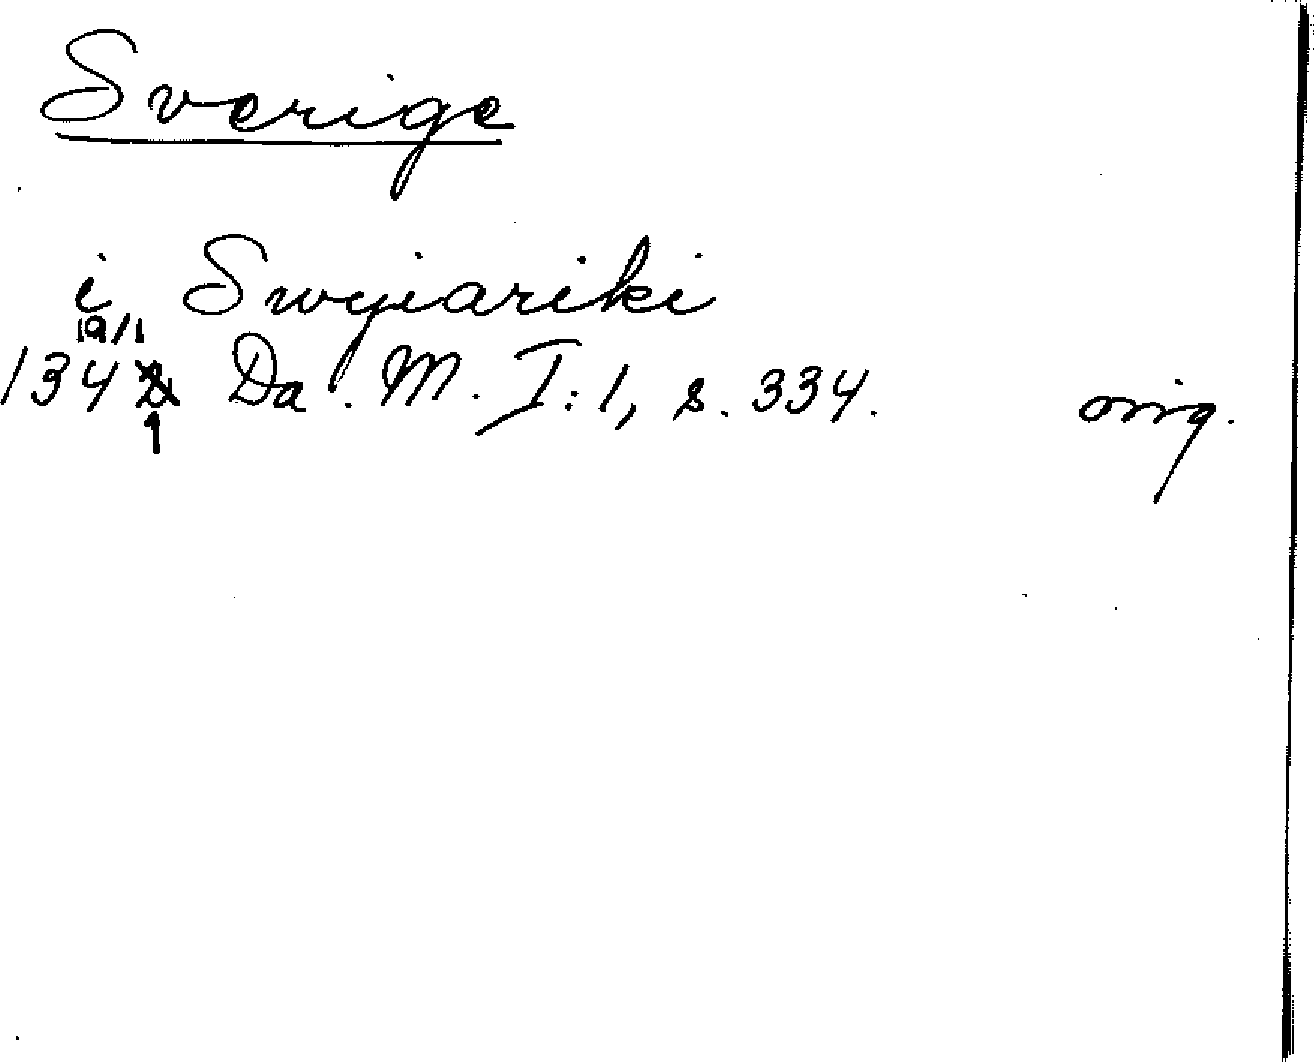 Sverige
i Swyiariki
19/1
1341 Da. M. I:1, s. 334. orig.